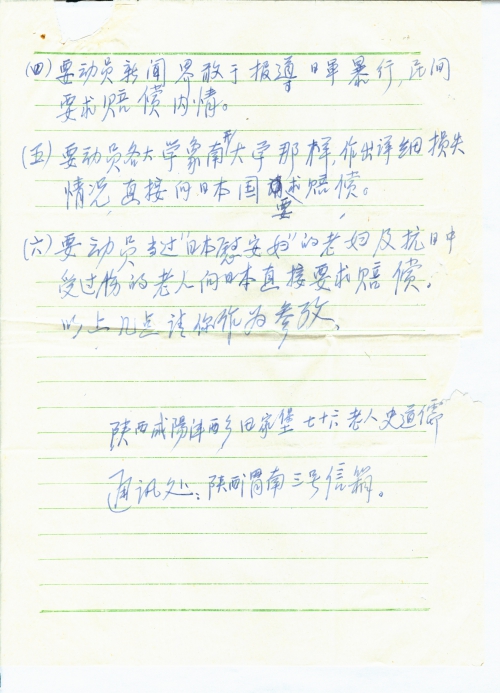 (四) 要动员新闻界敢于报導日军暴行,民间
要求赔偿内情。
(五) 要动员各大学象南开大学那样,作出详细损失
情况,直接向日本国要求赔偿。
(六) 要动员当过"日本慰安妇"的老妇及抗日中
受过伤的老人向日本直接要求赔偿。
以上几点请你作为参改、
陕西咸陽 西乡田家堡七十六老人史道儒
通讯处:陕西渭南三号信箱。